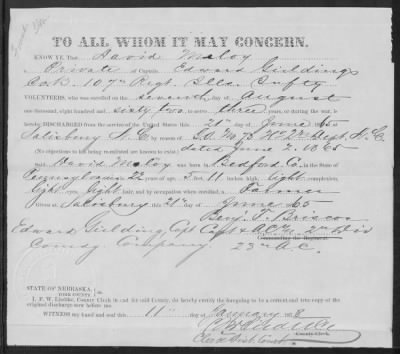 TO ALL WHOM IT MAY CONCERN.
KNOW YE, That David Maloy
a Private of Captain Edward Gieldings
Co B. 107th Regt. Ills Infty
VOLUNTEERS, who was enrolled on the seventh day of August
one thousand, eight hundred and sixty two, to serve three years, or during the war, is
hereby DISCHARGED from the service of the United States this 21st day of June 1865
Salisbury N.C. by reason of G.O. No 73 Dept. N.C.
(No objections to his being re-enlisted are known to exist.) dated June 2. 1865
Said David Maloy was born in Bedford Co. in the State of
Pennsylvania 22 years of age, 5 feet 11 inches high, light complexion,
light eyes, light hair, and by occupation when enrolled, a Farmer
Given at Salisbury this 21st day of June 65
Benj. F. Briscoe
Edward Gielding Capt Capt & 2nd Div
Comdg Company 23rd A.C.
Commanding the Regiment.
STATE OF NEBRASKA,
YORK COUNTY, ss.
County Clerk in and for said County, do hereby certify the foregoing to be a correct and true copy of the
original discharge now before me.
WITNESS my hand this 11th day of January 1878
County Clerk.